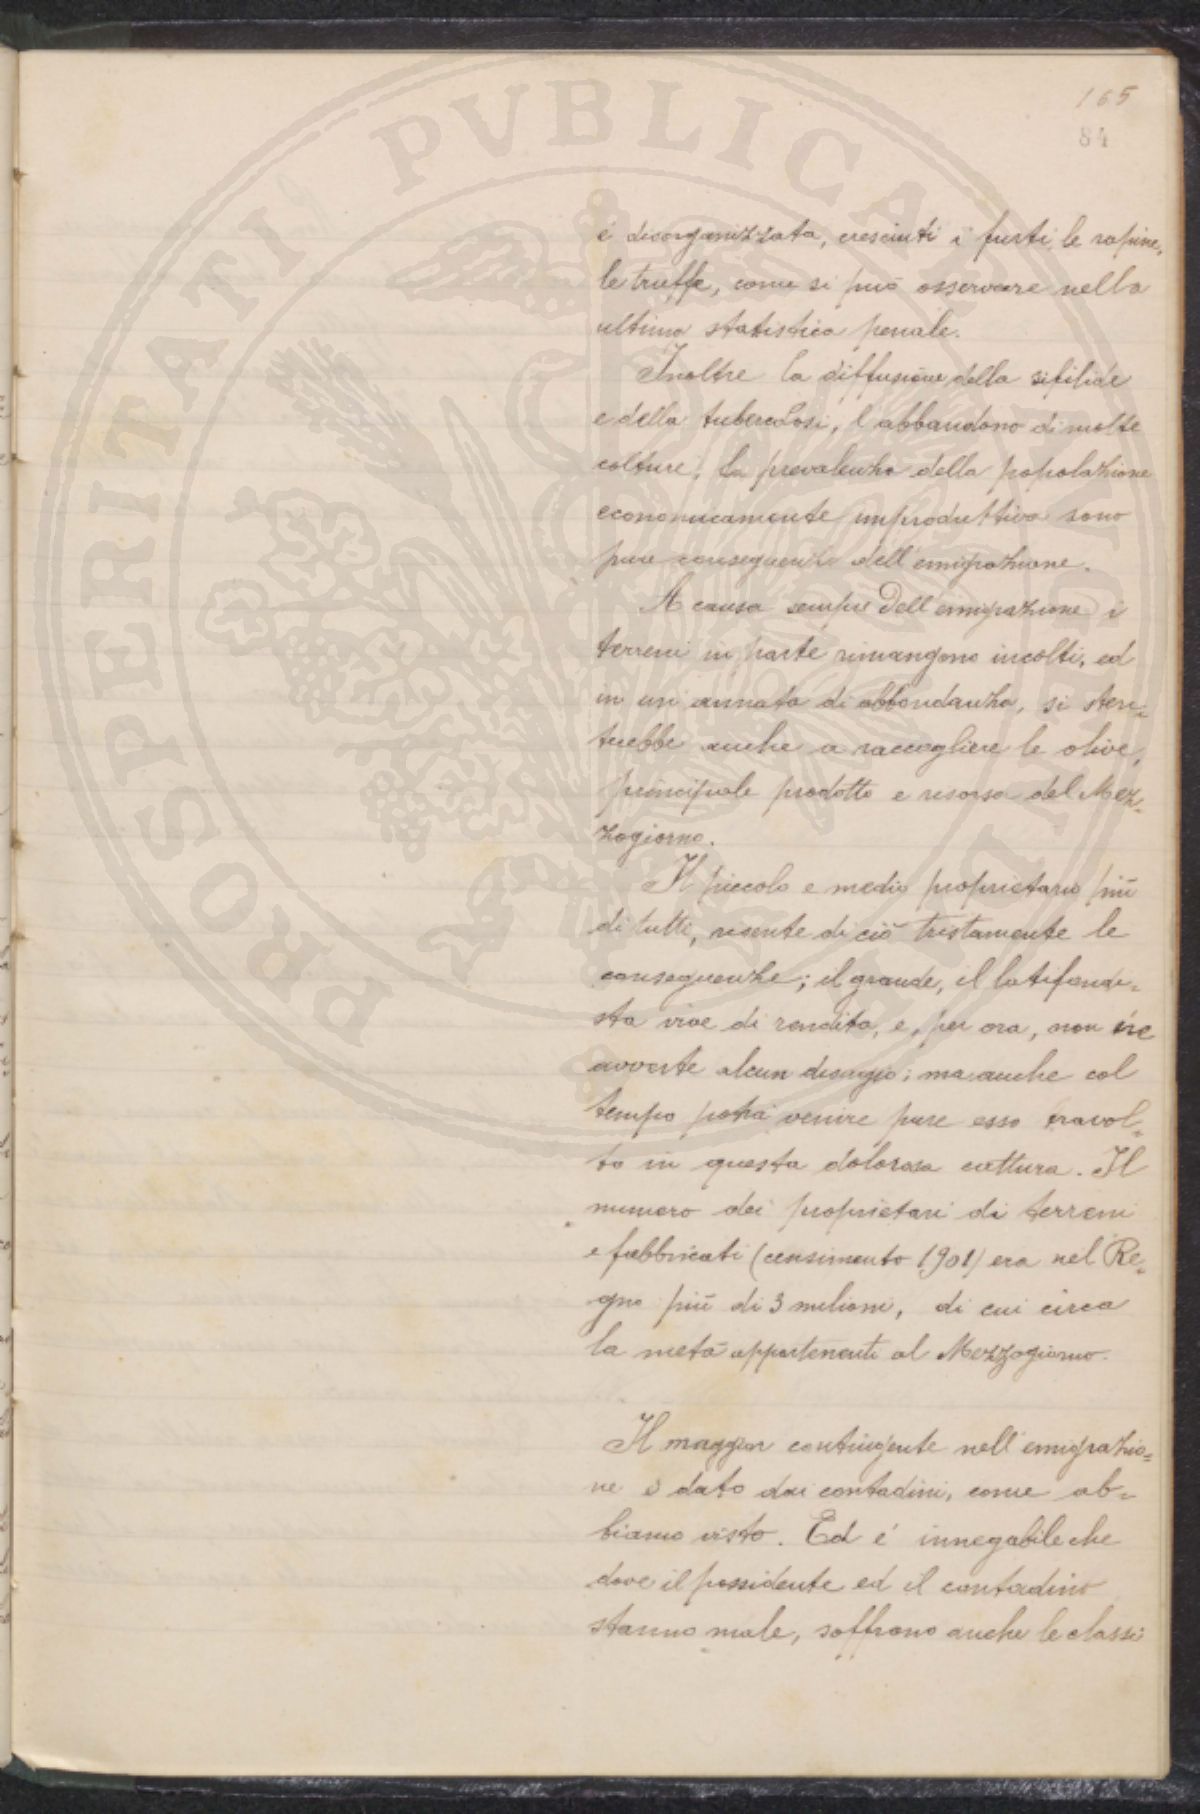 165
84
PROSPERITATI PVBLICAE AVGENDAE
é disorganizzata, cresciuti i furti, le rapine,
le truffe, come si può osservare nella
ultima statistica penale.
Inoltre la diffusione della sifilide
e della tubercolosi, l'abbandono di molte
colture, la prevalenza della popolazione
economicamente improduttiva sono
pure conseguenze dell'emigrazione.
A causa sempre dell'emigrazione i
terreni in parte rimangono incolti, ed
in un'annata di abbondanza, si sten=
terebbe anche a raccogliere le olive,
principale prodotto e risorsa del Mez=
zogiorno.
Il piccolo e medio proprietario più
di tutti, risente di ciò tristamente le
conseguenze; il grande, il latifondi=
sta vive di rendita, e, per ora, non ne
avverte alcun disagio; ma anche col
tempo potrà venire pure esso travol=
to in questa dolorosa
Il
numero dei proprietari di terreni
e fabbricati (censimento 1901) era nel Re=
gno più di 3 milioni, di cui circa
la metà appartenenti al Mezzogiorno.
Il maggior contingente nell'emigrazio=
ne è dato dai contadini, come ab=
biamo visto. Ed é innegabile che
dove il possidente ed il contadino
stanno male, soffrono anche le classi